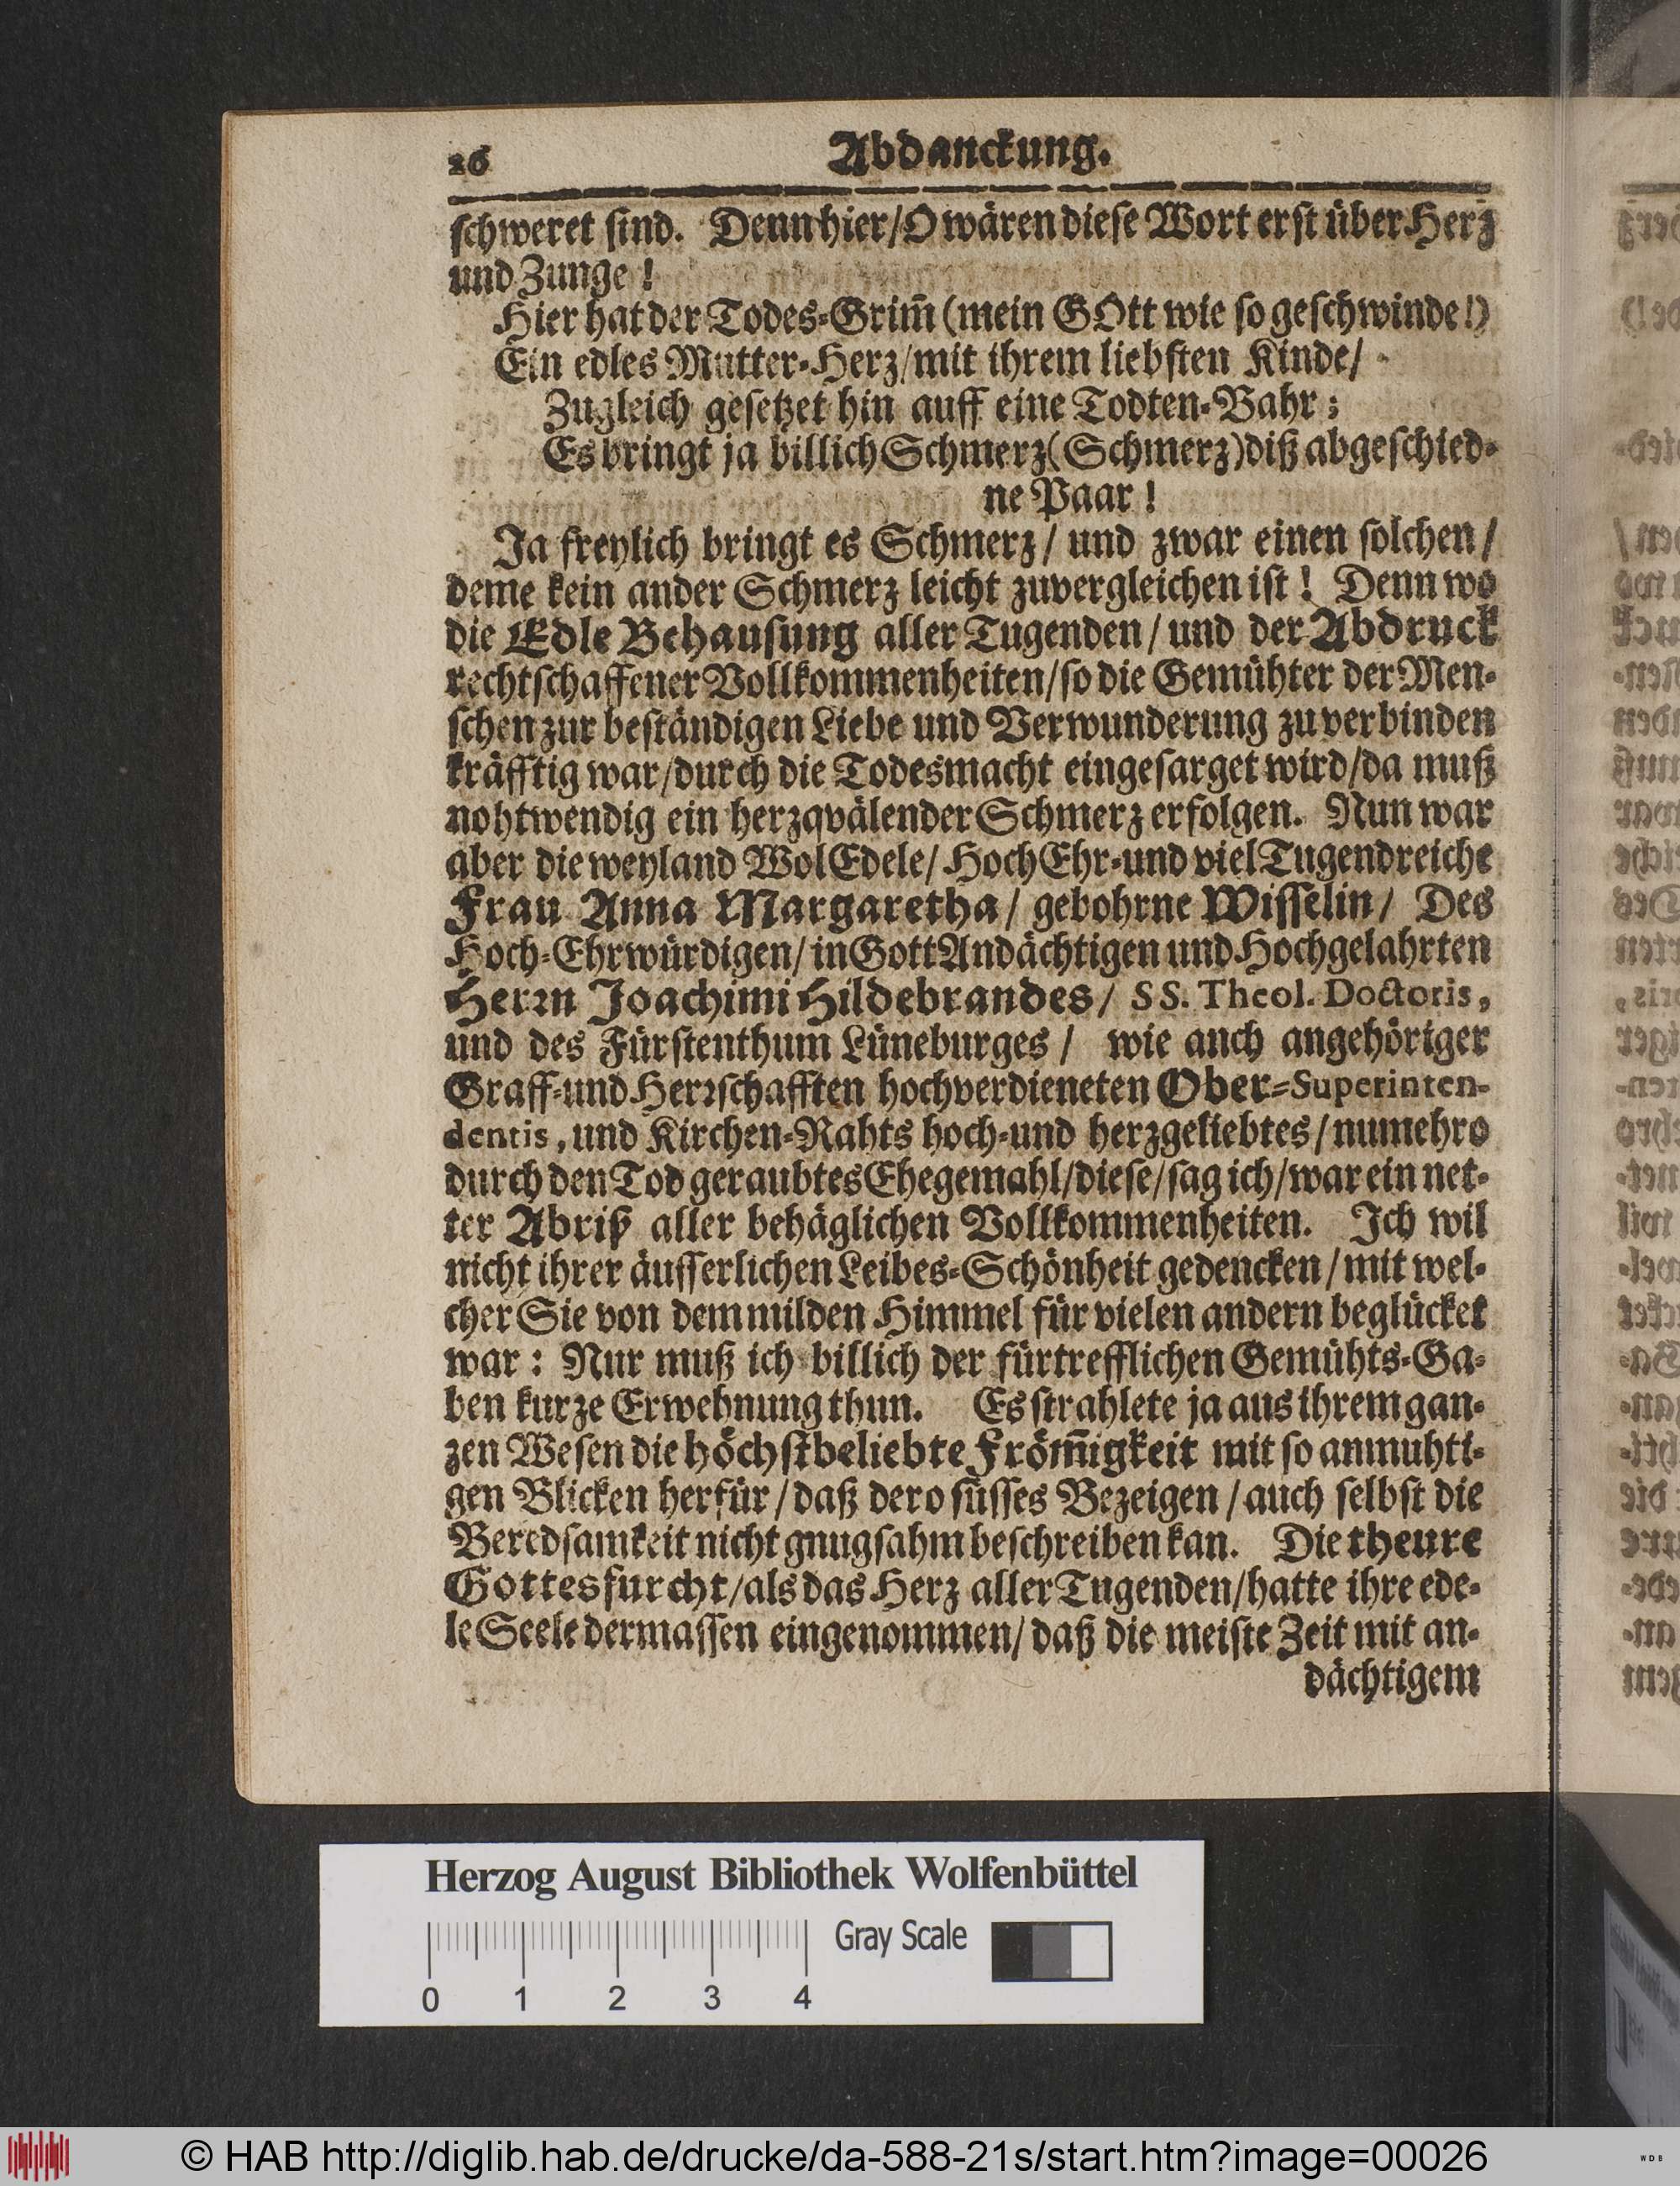 26 Abdanckung.
schweret sind. Denn hier/O wären diese Wort erst über Herz
und Zunge!
Hier hat der Todes-Grim̃ (mein GOtt wie so geschwinde!)
Ein edles Mutter-Herz/mit ihrem liebsten Kinde/
Zugleich gesetzet hin auff eine Todten-Bahr;
Es bringt ja billich Schmerz(Schmerz)diß abgeschied-
ne Paar!
Ja freylich bringt es Schmerz/ und zwar einen solchen/
deme kein ander Schmerz leicht zuvergleichen ist! Denn wo
die Edle Behausung aller Tugenden/und der Abdruck
rechtschaffener Vollkommenheiten/so die Gemühter der Men-
schen zur beständigen Liebe und Verwunderung zu verbinden
kräfftig war/durch die Todesmacht eingesarget wird/da muß
nohtwendig ein herzqvälender Schmerz erfolgen. Nun war
aber die weyland WolEdele/HochEhr-und vielTugendreiche
Frau Anna Margaretha/ gebohrne Wisselin/ Des
Hoch-Ehrwürdigen/in Gott Andächtigen und Hochgelahrten
Herrn Joachimi Hildebrandes/ SS. Theol. Doctoris,
und des Fürstenthum Lüneburges/ wie auch angehöriger
Graff-und Herrschafften hochverdieneten Ober-Superinten-
dentis, und Kirchen-Rahts hoch-und herzgeliebtes/numehro
durch den Tod geraubtes Ehegemahl/diese/sag ich/war ein net-
ter Abriß aller behäglichen Vollkommenheiten. Ich wil
nicht ihrer äusserlichen Leibes-Schönheit gedencken/mit wel-
cher Sie von dem milden Himmel für vielen andern beglücket
war: Nur muß ich billich der fürtrefflichen Gemühts-Ga-
ben kurze Erwehnung thun. Es strahlete ja aus ihrem gan-
zen Wesen die höchstbeliebte Fröm̃igkeit mit so anmuhti-
gen Blicken herfür/daß dero süsses Bezeigen/auch selbst die
Beredsamkeit nicht gnugsahm beschreiben kan. Die theure
Gottesfurcht/als das Herz aller Tugenden/hatte ihre ede-
le Seele dermassen eingenommen/daß die meiste Zeit mit an-
dächtigem
Herzog August Bibliothek Wolfenbüttel
Gray Scale
0 1 2 3 4
© HAB http://diglib.hab.de/drucke/da-588-21s/start.htm?image=00026
WDB